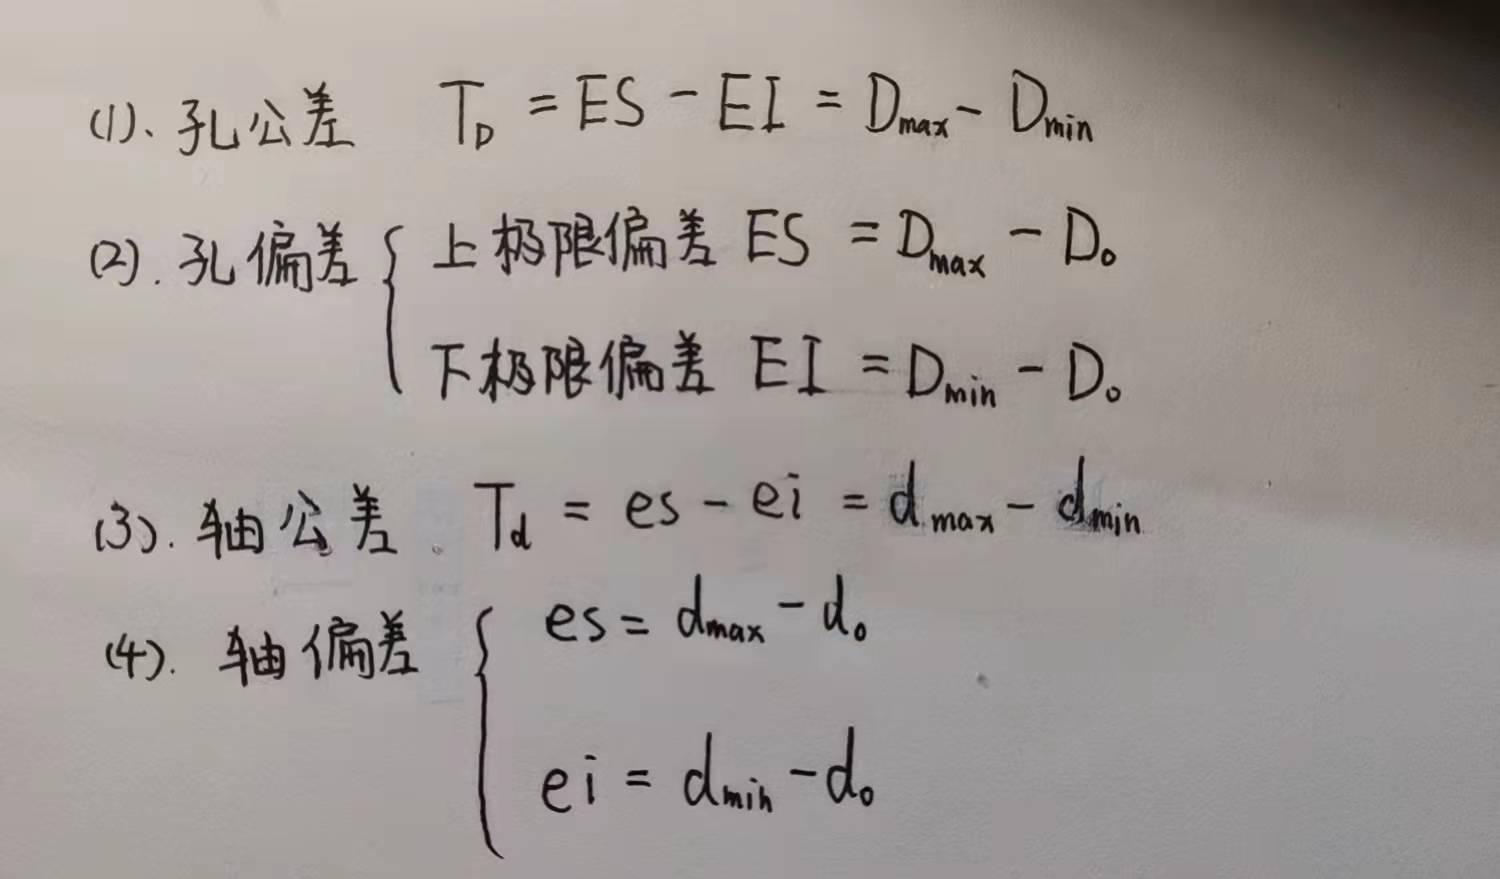 (1)、孔公差 T_D = ES - EI = D_max - D_min
(2). 孔偏差 { 上极限偏差 ES = D_max - D_0
下极限偏差 EI = D_min - D_0
(3). 轴公差. T_d = es - ei = d_max - d_min
(4). 轴偏差 { es = d_max - d_0
ei = d_min - d_0